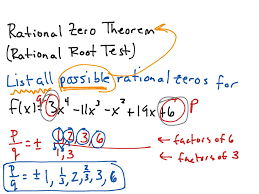 Rational Zero Theorem
(Rational Root Test)
List all possible rational zeros for
f(x) = 3x⁴ - 11x³ - x² + 19x + 6
q
P
P/q = ± 1, 2, 3, 6 / 1, 3
← factors of 6
← factors of 3
P/q = ± 1, 1/3, 2, 2/3, 3, 6